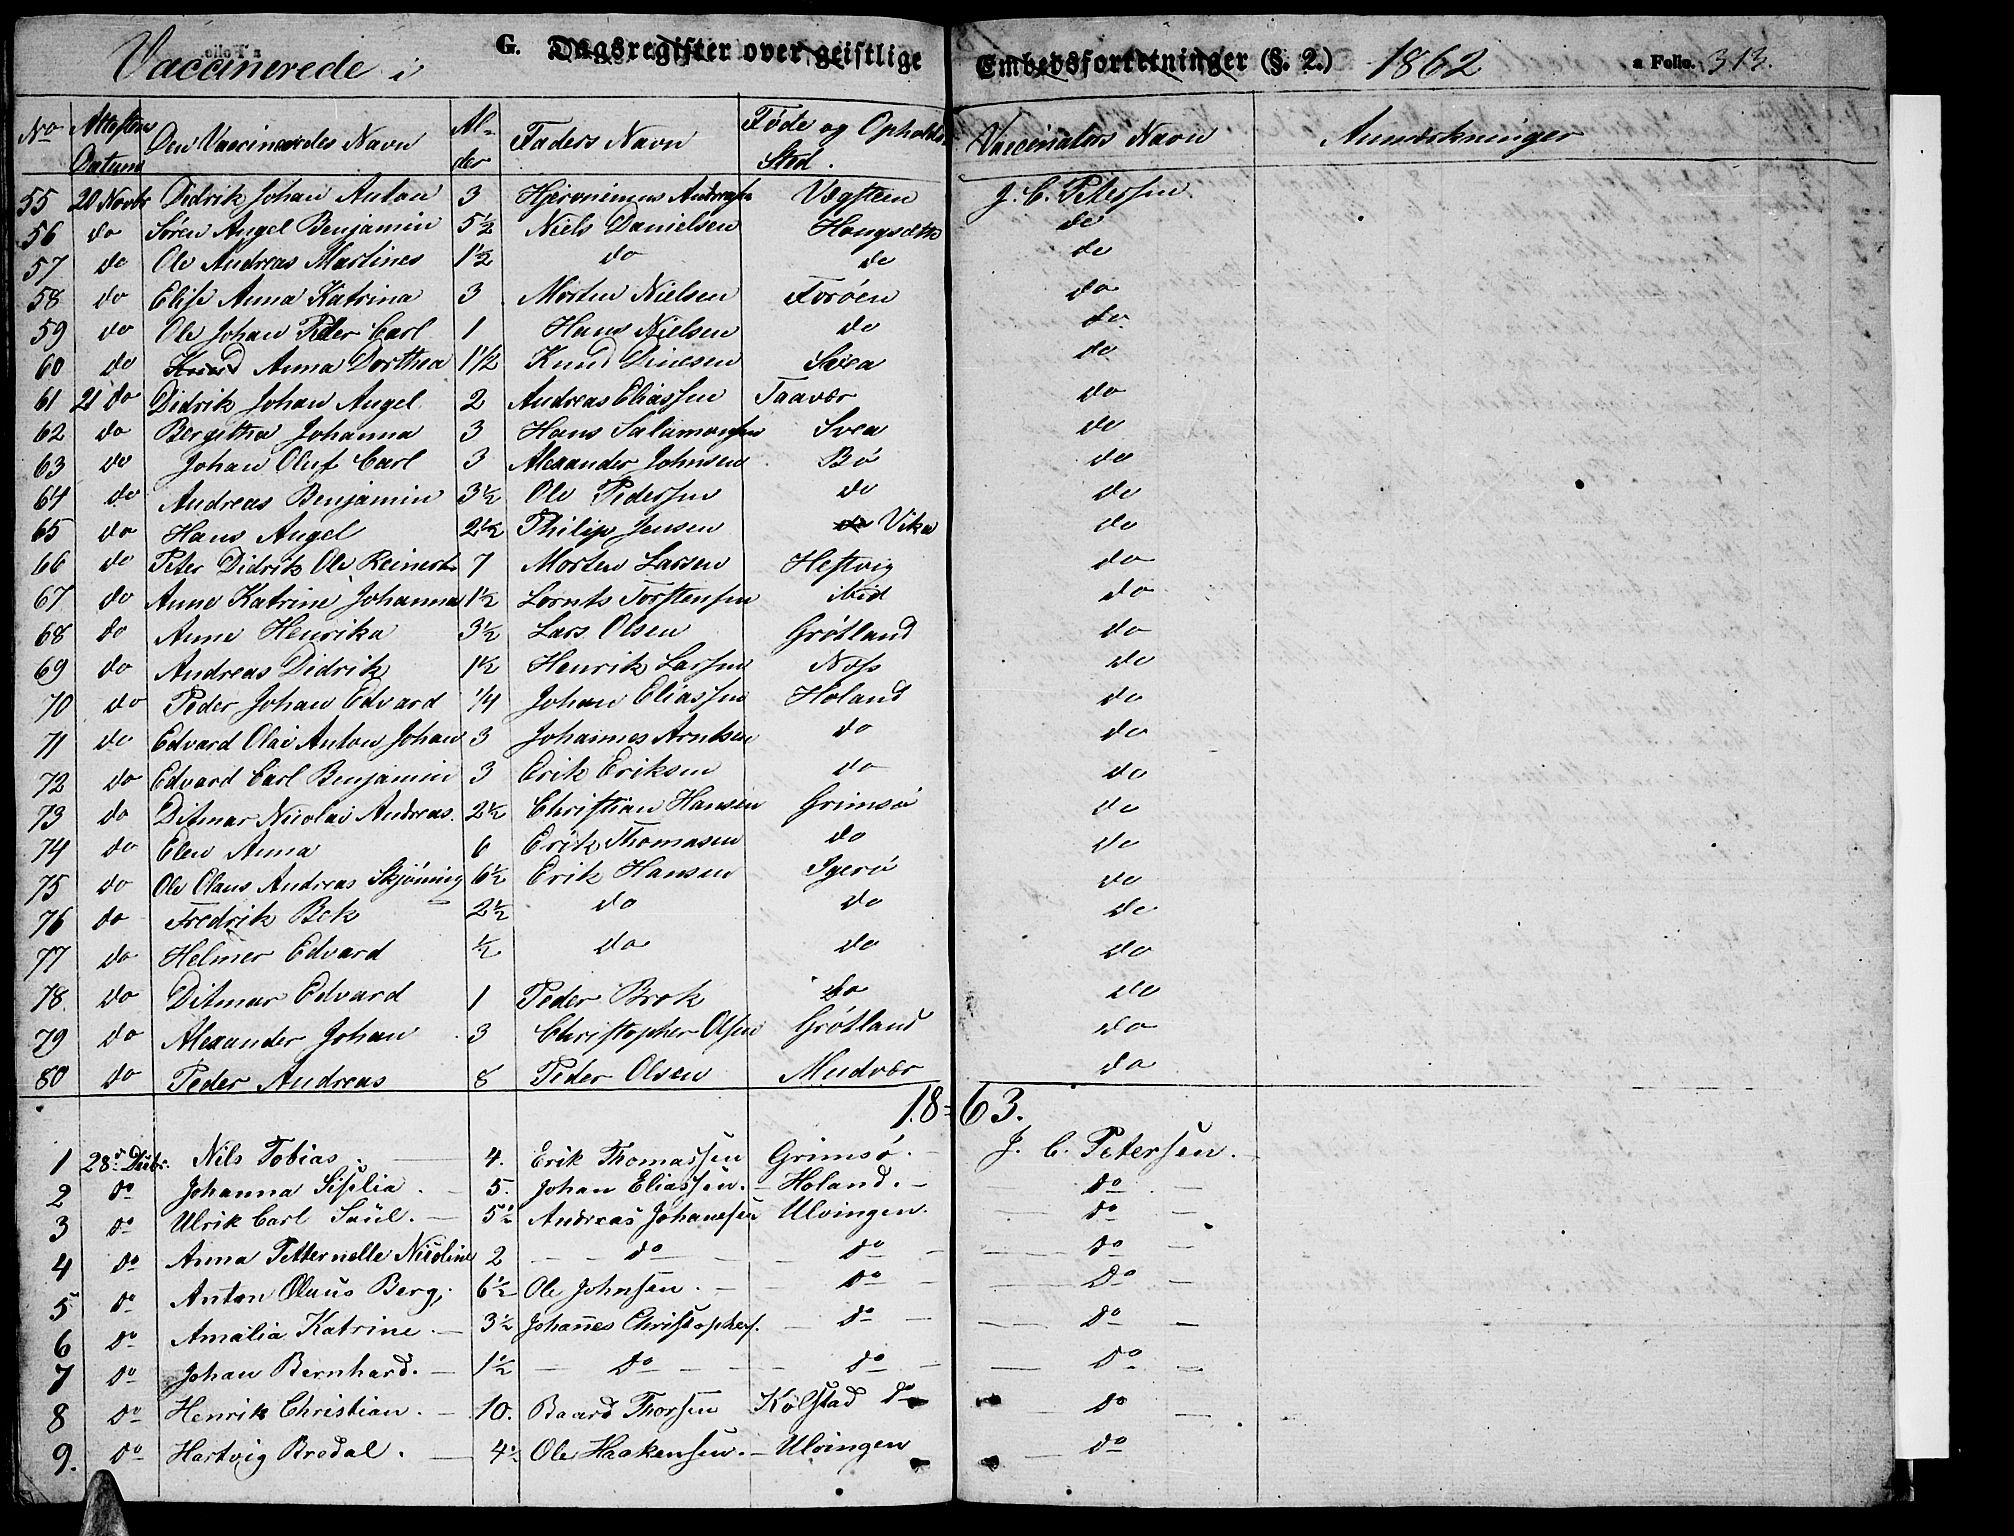 Vaccinerede i G. Dagsregister over geistlige Embedsforretninger (§. 2.) 1862 a Folio. 313.
No Attestens Datum Den Vaccineredes Navn Alder Faders Navn Føde og Opholds Sted. Vaccinatørs Navn Anmærkninger
55 20 Novbr Didrik Johan Anton 3 Hjeronimus Andreassen Vægstein J. C. Petersen
56 do Søren Angel Benjamin 5½ Niels Danielsen Haugsæth do
57 do Ole Andreas Martines 1½ do do do
58 do Elise Anna Katrina 3 Morten Nielsen Forøen do
59 do Ole Johan Peter Carl 1 Hans Nielsen do do
60 do Anna Dorthea 1½ Knud Dinesen Svea do
61 21 do Didrik Johan Angel 2 Andreas Eliassen Taavær do
62 do Bergitha Johanna 3 Hans Salamonsen Svea do
63 do Johan Oluf Carl 3 Alexander Johnsen Bø do
64 do Andreas Benjamin 3½ Ole Pedersen do do
65 do Hans Angel 2½ Philip Jensen do Vika do
66 do Peter Didrik Ole Reinert 7 Morten Larsen Hestvig do
67 do Anne Katrine Johanna 1½ Lornts Torstensen ibid do
68 do Anne Henrika 3½ Lars Olsen Grøtland do
69 do Andreas Didrik 1½ Henrik Larsen Noss do
70 do Peder Johan Edvard 1/4 Johan Eliassen Holand do
71 do Edvard Olai Anton Johan 3 Johannes Arntsen do do
72 do Edvard Carl Benjamin 3 Erik Eriksen do do
73 do Ditmar Nicolai Andreas. 2½ Christian Hansen Grimsø do
74 do Elen Anna 6 Erik Thomasen do do
75 do Ole Olaus Andreas Skjøning 6½ Erik Hansen Igerø do
76 do Fredrik Bek 2½ do do do
77 do Helmer Edvard ½ do do do
78. do Ditmar Edvard 1 Peder Brok do do
79 do Alexander Johan 3 Christopher Olsen Grøtland do
80 do Peder Andreas 8 Peder Olsen Mudvær do
1863.
1 28de Decbr. Nils Tobias 4. Erik Thomassen Grimsø. J. C. Petersen.
2 do Johanna Sisilia. 5. Johan Eliassen. Holand. do
3 do Ulrik Carl Saul. 5½ Andreas Johanesen Ulvingen. do
4 do Anna Petternelle Nicoline 2 do do do
5 do Anton Olaus Berg. 6½ Ole Johnsen. do do
6 do Amalia Katrine. 3½ Johannes Christophers. do do
7 do Johan Bernhard. 1½ do do do
8 do Henrik Christian. 10. Baard Thorsen Kølstad do do
9. do Hartvig Bredal. 4½ Ole Haakensen. Ulvingen do